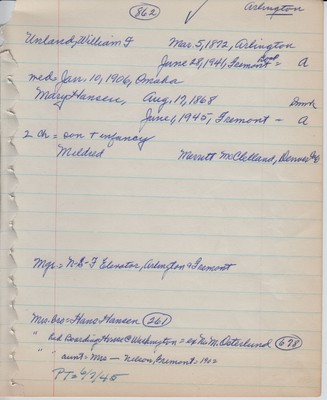 862
Arlington
Unland, William F Mar. 5, 1872, Arlington
June 28, 1941, Fremont = A
med Jan. 10, 1906, Omaha
Mary Hansen, Aug. 17, 1868 Dmk
June 1, 1945, Fremont - A
2 ch = son + infancy
Mildred Merritt McClelland, Denver
Mgr = N-S-F Elevator, Arlington + Fremont
Mrs. bro = Hans Hansen 261
" had Boarding House C Washington = Mrs M. Osterlund 678
" aunt = Mrs — Nelson, Fremont = 1902
PT = 6/7/45